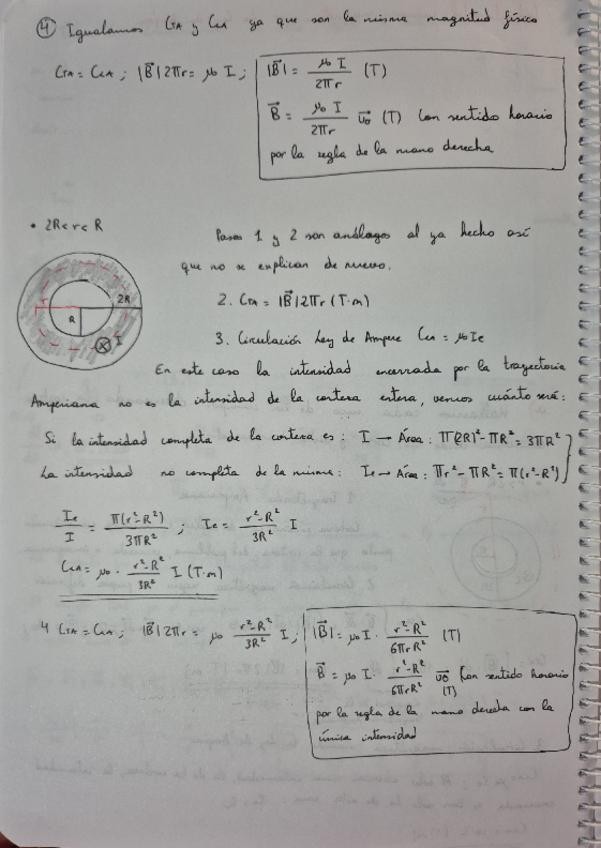 ④ Igualamos C_TA y C_LA ya que son la misma magnitud física
C_TA = C_LA ; |B⃗| 2πr = μ₀ I ; |B⃗| = μ₀ I / 2πr (T)
B⃗ = μ₀ I / 2πr u⃗θ (T) Con sentido horario
por la regla de la mano derecha
• 2R<r<R
Pasos 1 y 2 son análogos al ya hecho así
que no se explican de nuevo.
2R
R
I
2. C_TA = |B⃗| 2πr (T·m)
3. Circulación Ley de Ampere C_LA = μ₀ Ie
En este caso la intensidad encerrada por la trayectoria
Amperiana no es la intensidad de la corteza entera, veamos cuánto será:
Si la intensidad completa de la corteza es: I → Área: π(2R)² - πR² = 3πR²
La intensidad no completa de la misma: Ie → Área: πr² - πR² = π(r² - R²)
Ie / I = π(r² - R²) / 3πR² ; Ie = r² - R² / 3R² I
C_LA = μ₀ · r² - R² / 3R² I (T·m)
4 C_TA = C_LA ; |B⃗| 2πr = μ₀ r² - R² / 3R² I ; |B⃗| = μ₀ I · r² - R² / 6πrR² (T)
B⃗ = μ₀ I · r² - R² / 6πrR² u⃗θ (T) Con sentido horario
por la regla de la mano derecha con la
única intensidad